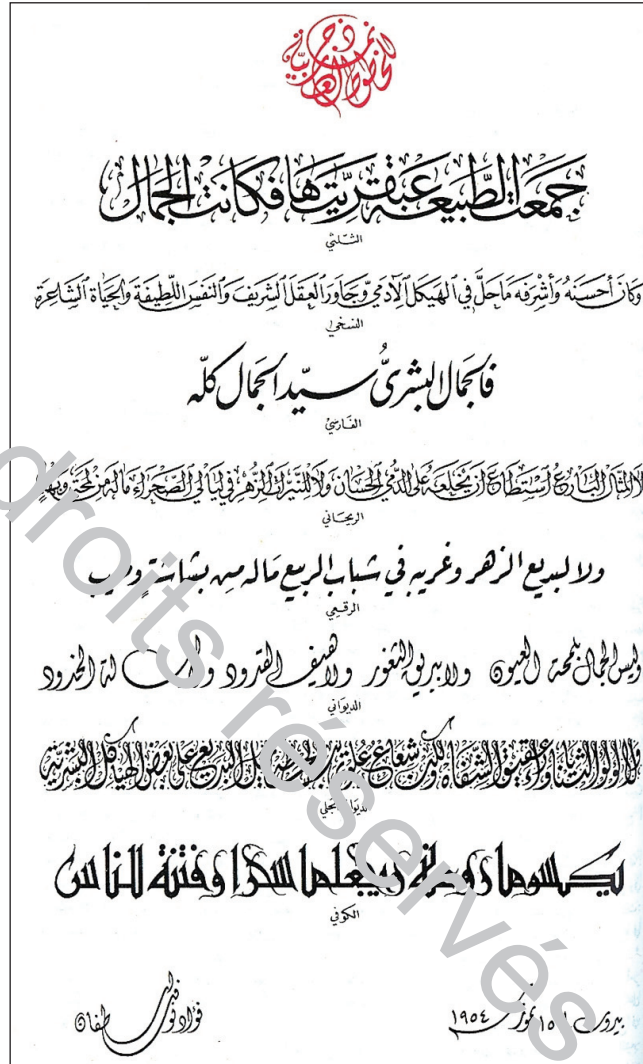 نماذج للخطوط العربية
جمعت الطَّبيعة عبقريّتها فكانت الجمال
الثلثي
وكان أحسنه وأشرفه ما حلَّ في الهيكل الآدمي وجاور العقل الشريف والنفس اللطيفة والحياة الشاعرة
النسخي
فالجمال البشريُّ سيّد الجمال كلّه
الفارسي
لا المثال البارع استطاع أن يخلعه على الدمى الحسان ولا للنيرات الزهر في ليالي الصحراء ما له من لمحة وبهاء
الريحاني
ولا لبديع الزهر وغريبه في شباب الربيع ماله من بشاشة وطيب
الرقعي
وليس الجمال بلمحة العيون ولا ببريق الثغور ولا هيف القدود ولا أسالة الخدود
الديواني
ولا لؤلؤ الثنايا وراء عقيق الشفاه ولكن شعاع علوي يبسطه الجميل البديع على بعض الهياكل البشرية
ديواني جلي
يكسوها روعة ويجعلها سحرا وفتنة للناس
الكوفي
بيروت ١٥ تموز ١٩٥٤
فؤاد توفيق اسطفان
droits réservés